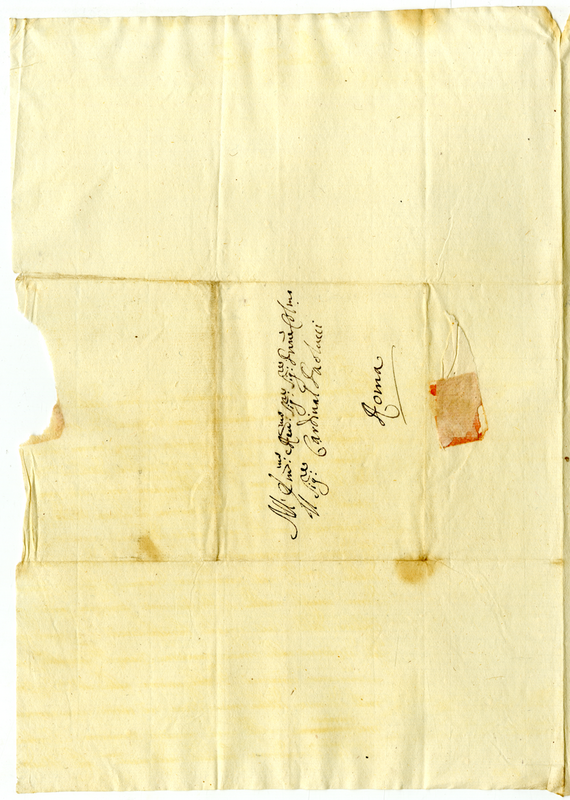 All' Em.mo e Rev.mo Sig.re Sig.re P.rone Col.mo
Il Sig.re Cardinal Paolucci
Roma